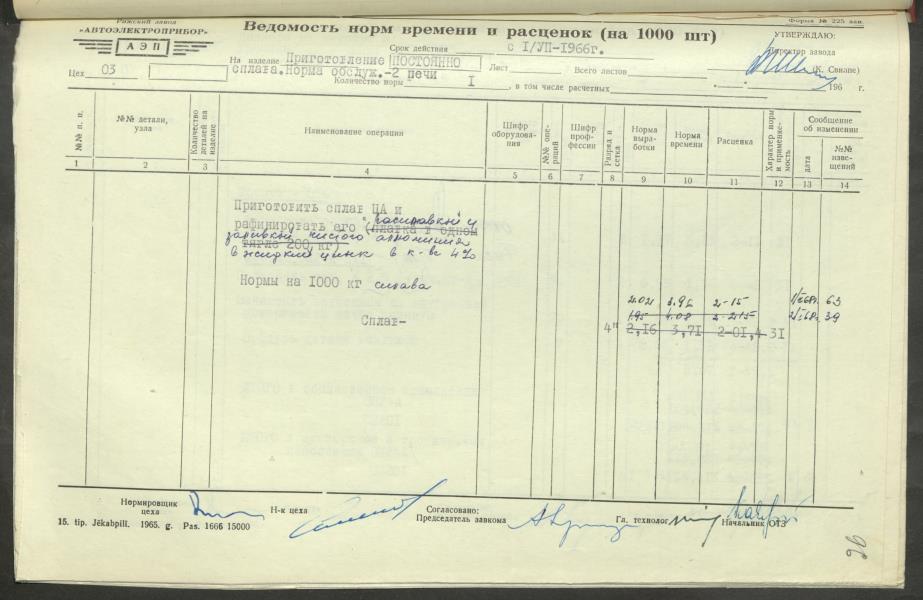 Рижский завод
«АВТОЭЛЕКТРОПРИБОР»
АЭП
Ведомость норм времени и расценок (на 1000 шт)
Форма № 225 зав.
УТВЕРЖДАЮ:
Директор завода
(К. Свиапе)
196 г.
Срок действия с I/УП-1966г.
На изделие Приготовление ПОСТОЯННО Лист Всего листов
Цех 03 сплава. Норма обслуж.-2 печи
Количество норм I , в том числе расчетных
№№ п. п. №№ детали, узла Количество деталей на изделие Наименование операции Шифр оборудования №№ операций Шифр профессии Разряд и сетка Норма выработки Норма времени Расценка Характер норм и применяемость Сообщение об изменении дата №№ извещений
1 2 3 4 5 6 7 8 9 10 11 12 13 14
Приготовить сплав ЦА и
рафинировать его (плавка в одном
тигле 200 кг)
в жидкий цинк в к-ве 4%
Нормы на 1000 кг сплава
2.02 3.96 2-15 63
1.95 4.08 2-215 39
Сплав- 4" 2,16 3,71 2-01,4 31
Нормировщик цеха Н-к цеха Согласовано: Председатель завкома Гл. технолог Начальник ОТЗ
15. tip. Jēkabpilī. 1965. g. Pas. 1666 15000
96